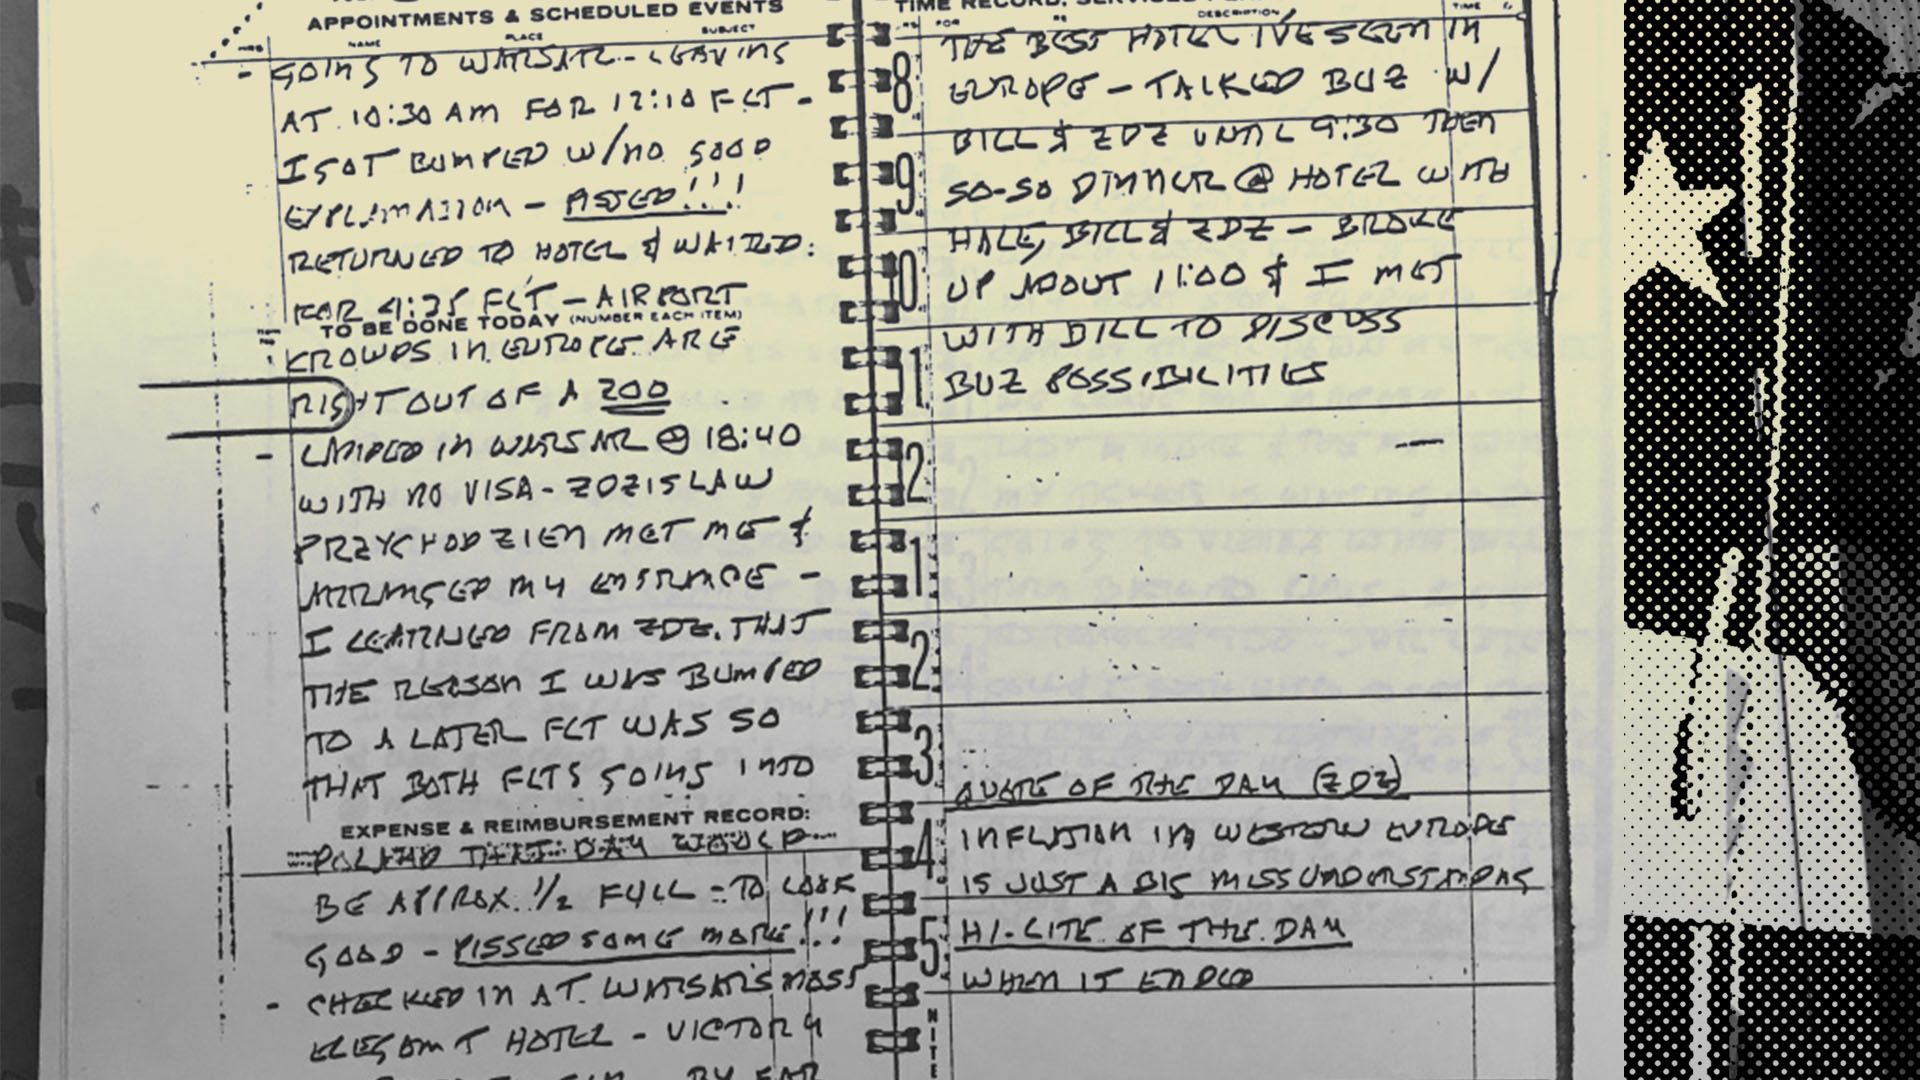 APPOINTMENTS & SCHEDULED EVENTS
NAME PLACE SUBJECT
- GOING TO WARSAR - LEAVING
AT 10:30 AM FOR 12:10 FLT -
I GOT BUMPED W/NO GOOD
EXPLANATION - PISSED!!!
RETURNED TO HOTEL & WAITED
FOR 4:25 FLT - AIRPORT
TO BE DONE TODAY (NUMBER EACH ITEM)
CROWDS IN EUROPE ARE
RIGHT OUT OF A ZOO
- LANDED IN WARSAR @ 18:40
WITH NO VISA - ZDZ IS LAW
PRZYCHODZIEN MET ME &
ARRANGED MY ENTRANCE -
I LEARNED FROM ZDZ. THAT
THE REASON I WAS BUMPED
TO A LATER FLT WAS SO
THAT BOTH FLTS GOING INTO
EXPENSE & REIMBURSEMENT RECORD:
POLAND THAT DAY WOULD
BE APPROX. 1/2 FULL - TO LOOK
GOOD - PISSED SOME MORE!!!
- CHECKED IN AT WARSAR'S MOST
ELEGANT HOTEL - VICTORY
BY FAR
DESCRIPTION TIME
THE BEST HOTEL I'VE SEEN IN
8 EUROPE - TALKED BUZ W/
BILL & ZDZ UNTIL 9:30 THEN
9 SO-SO DINNER @ HOTEL WITH
HALE, BILL & ZDZ - BROKE
10 UP ABOUT 11:00 & I MET
WITH BILL TO DISCUSS
11 BUZ POSSIBILITIES
12
1
2
3
QUOTE OF THE DAY (ZDZ)
4 INFLATION IN WESTERN EUROPE
IS JUST A BIG MISSUNDERSTANDING
5 HI-LITE OF THE DAY
WHEN IT ENDED
NITE